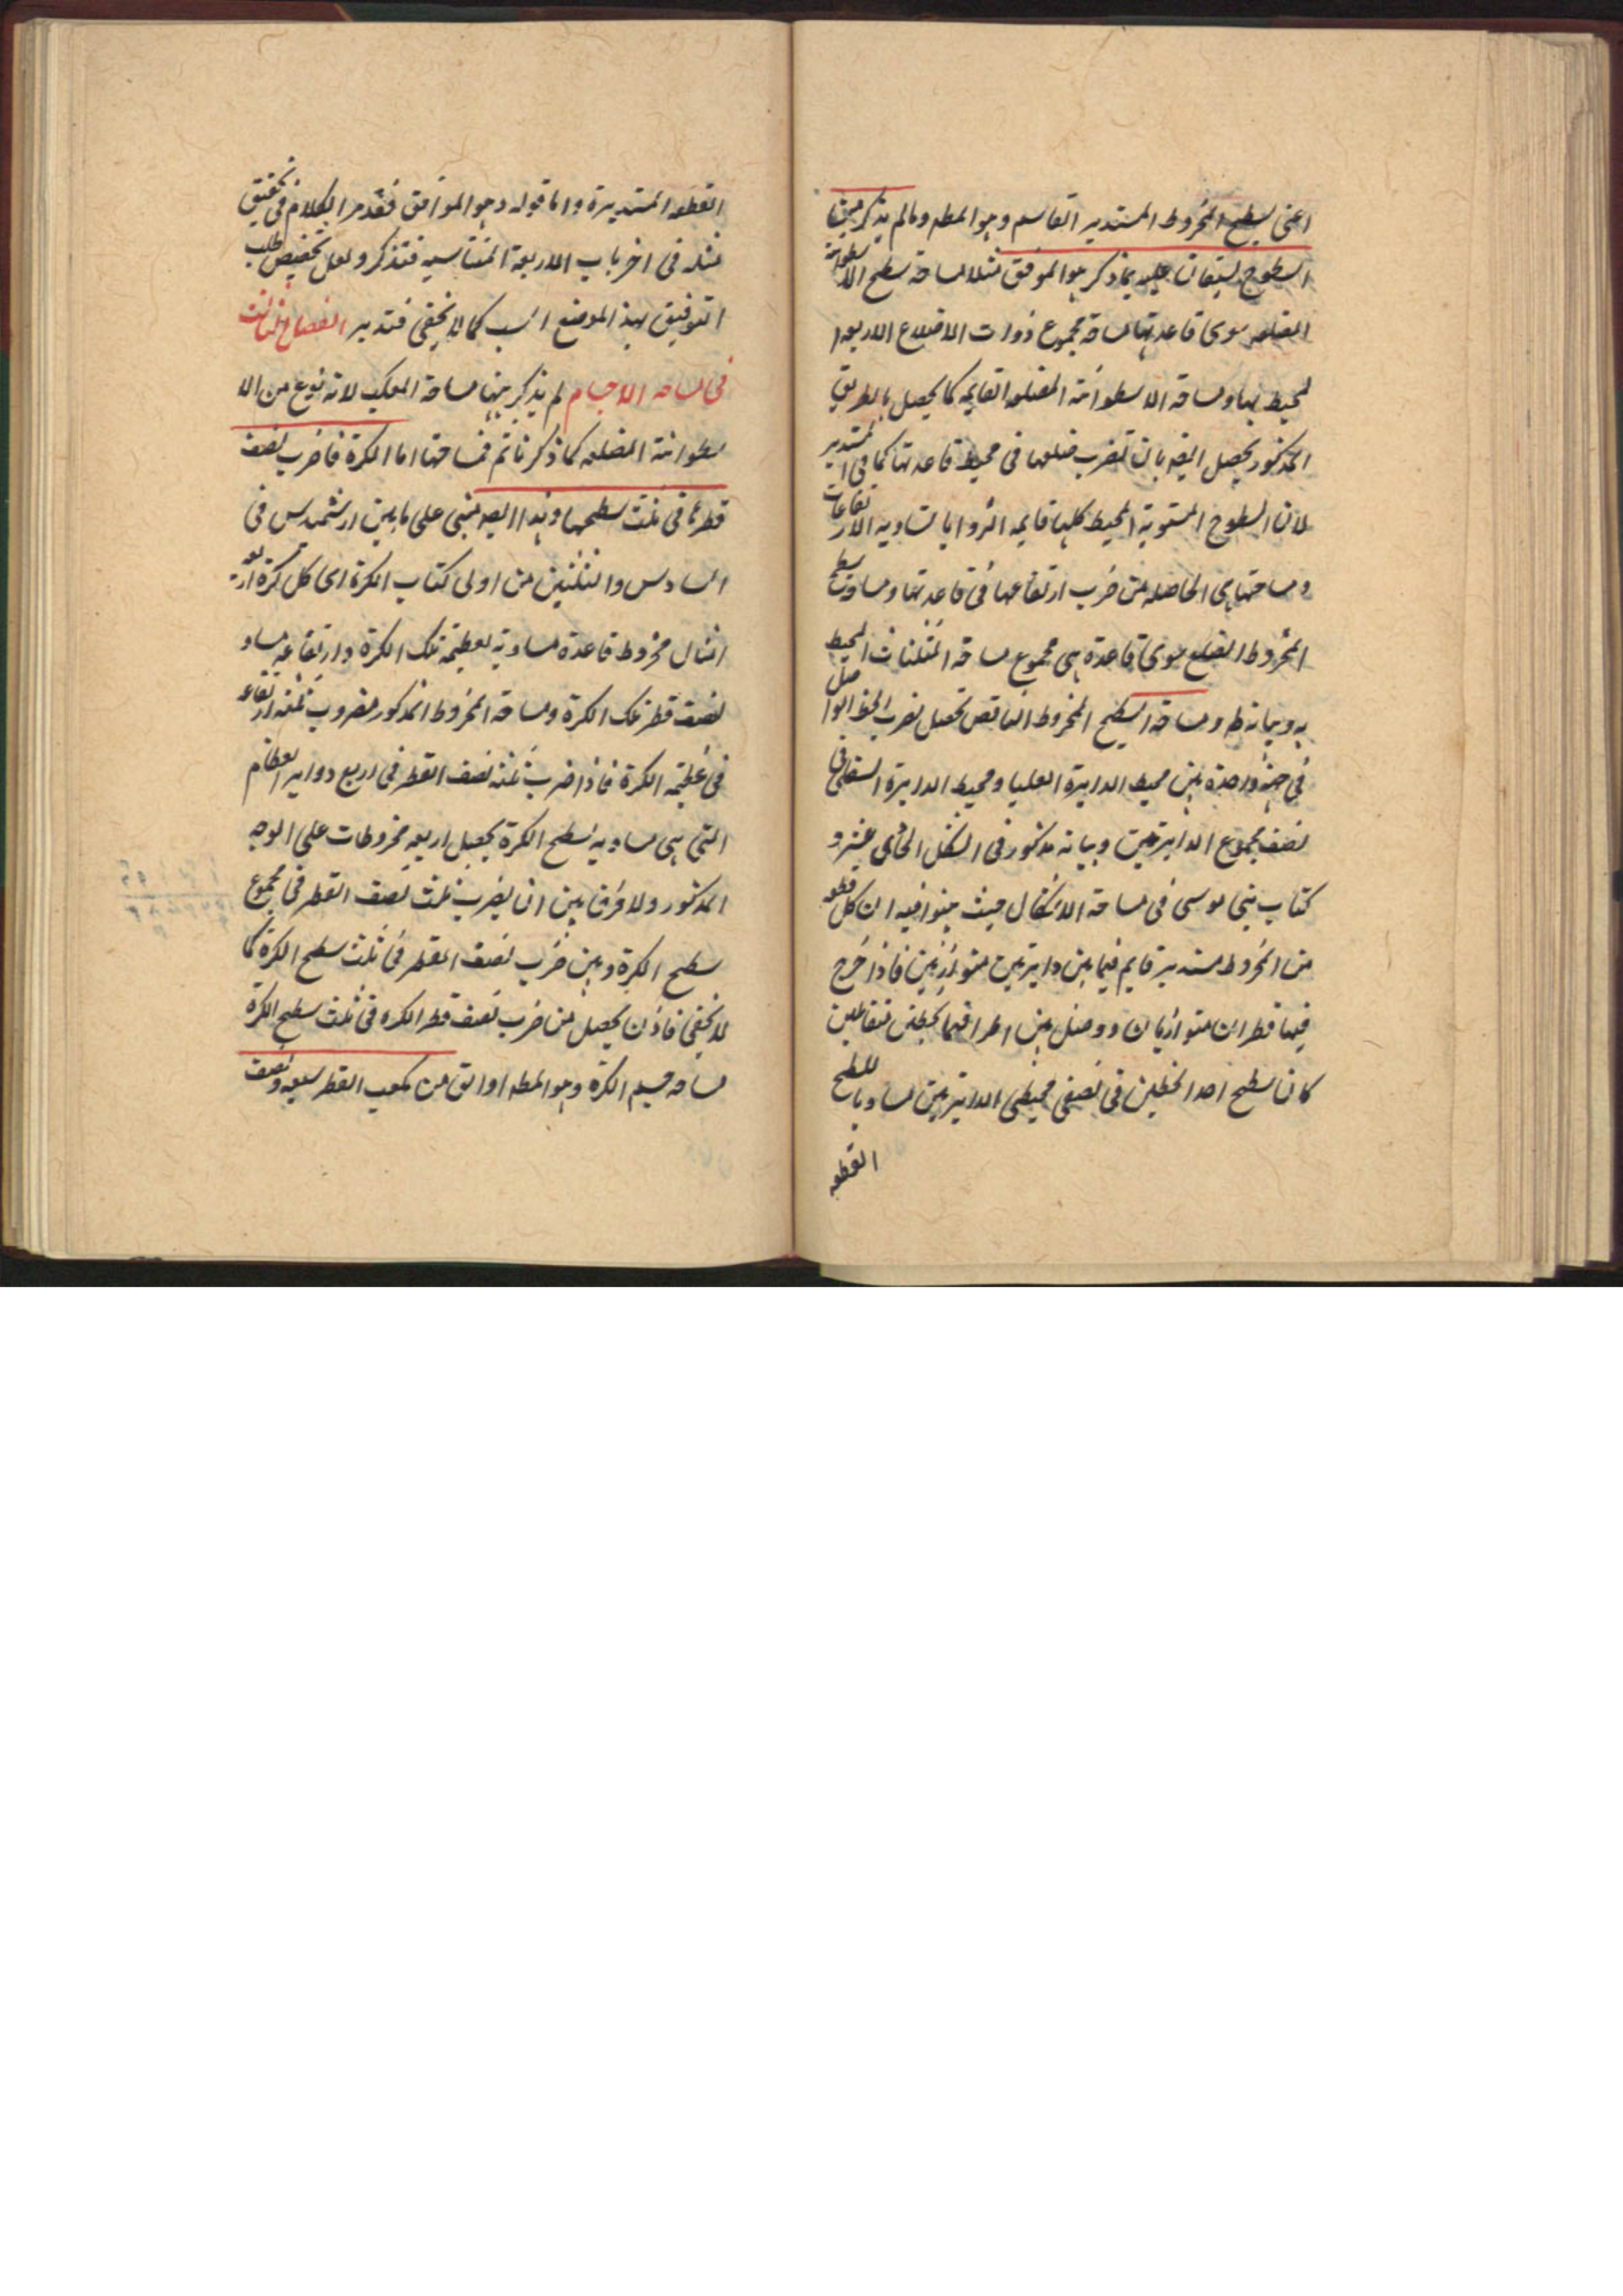 اعنى سطح المخروط المستدير القاسم وهو المطـ ومالم يذكر من
السطوح يستعان عليه بما ذكر وهو الموفق مثلا مساحة سطح الاسطوانة
المضلعه سوى قاعدتها مساحة مجموع ذوات الاضلاع الاربعه ا
لمحيط بها ومساحة الاسطوانة المضلعه القايمه كما يحصل بالطريق
المذكور يحصل ايضه بان تضرب ضلعها فى محيط قاعدتها كما فى المستدير
لان السطوح المستوية المحيط كلها قايمه الزوايا متساويه الارتفاعات
ومساحتها هى الحاصله من ضرب ارتفاعها فى قاعدتها ومساحة سطح
المخروط المضلع سوى قاعدة هى مجموع مساحة المثلثات المحيط
به وبيانه ظـ ومساحة سطح المخروط الناقص تحصل بضرب الخط الواصل
فى جهة واحدة بين محيط الدايرة العليا ومحيط الدايرة السفلى فى
نصف مجموع الدايرتين وبيانه مذكور فى الشكل الحادى عشر و
كتاب بنى موسى فى مساحة الاشكال حيث بينوا فيه ان كل قطعه
من المخروط مستدير قايم فيما بين دايرتين متوازيين فاذا خرج
فيهما قطران متوازيان ووصل بين اطرافهما بخطين متقابلين
كان سطح احد الخطين فى نصفى محيطى الدايرتين مساويا لسطح
القطعه
القطعه المستديرة واما قوله وهو الموافق فقد مر الكلام فى تحقيق
مثله فى اخر باب الاربعة المتناسبه فتذكر ولعل تخصيص طلب
التوفيق بهذا الموضع انسب كما لا يخفى فتدبر الفصل الثالث
فى مساحه الاجسام لم يذكر منها مساحة المكعب لانه نوع من الا
سطوانة المضلعه كما ذكرنا ثم فمساحتها اما الكرة فاضرب نصف
قطرها فى ثلث سطحها وهذا ايضه مبنى على ما بين ارشميدس فى
السادس والثلثين من اولى كتاب الكرة اى كل كرة اربعه
امثال مخروط قاعدة مساوية لعظيمة تلك الكرة وارتفاعه مساو
لنصف قطر تلك الكرة ومساحة المخروط المذكور مضروب ثلثه ارتفاعه
فى عظيمه الكرة فاذا ضرب ثلثه نصف القطر فى اربع دواير العظام
التى هى مساويه لسطح الكرة يحصل اربعه مخروطات على الوجه
المذكور ولا فرق بين ان يضرب ثلث نصف القطر فى مجموع
سطح الكرة وبين ضرب نصف القطر فى ثلث سطح الكرة كما
لا يخفى فاذن يحصل من ضرب نصف قطر الكره فى ثلث سطح الكرة
مساحه جسم الكرة وهو المطـ او الق من مكعب القطر سبعه ونصف